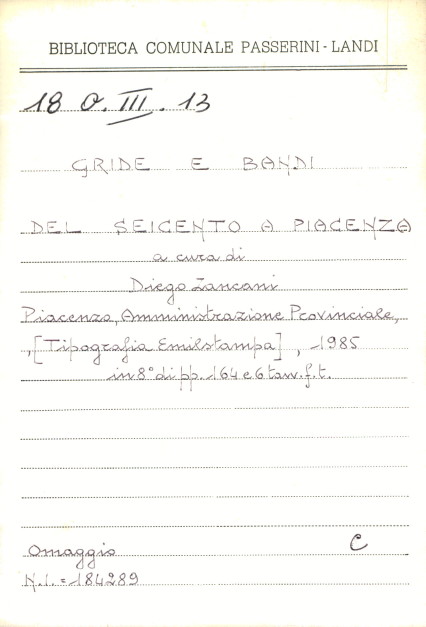 BIBLIOTECA COMUNALE PASSERINI-LANDI
18 O. III. 13
GRIDE E BANDI
DEL SEICENTO A PIACENZA
a cura di
Diego Zancani
Piacenza, Amministrazione Provinciale,
, [Tipografia Emilstampa], 1985
in 8° di pp. 164 e 6 tav. f. t.
Omaggio C
N.I. = 184289